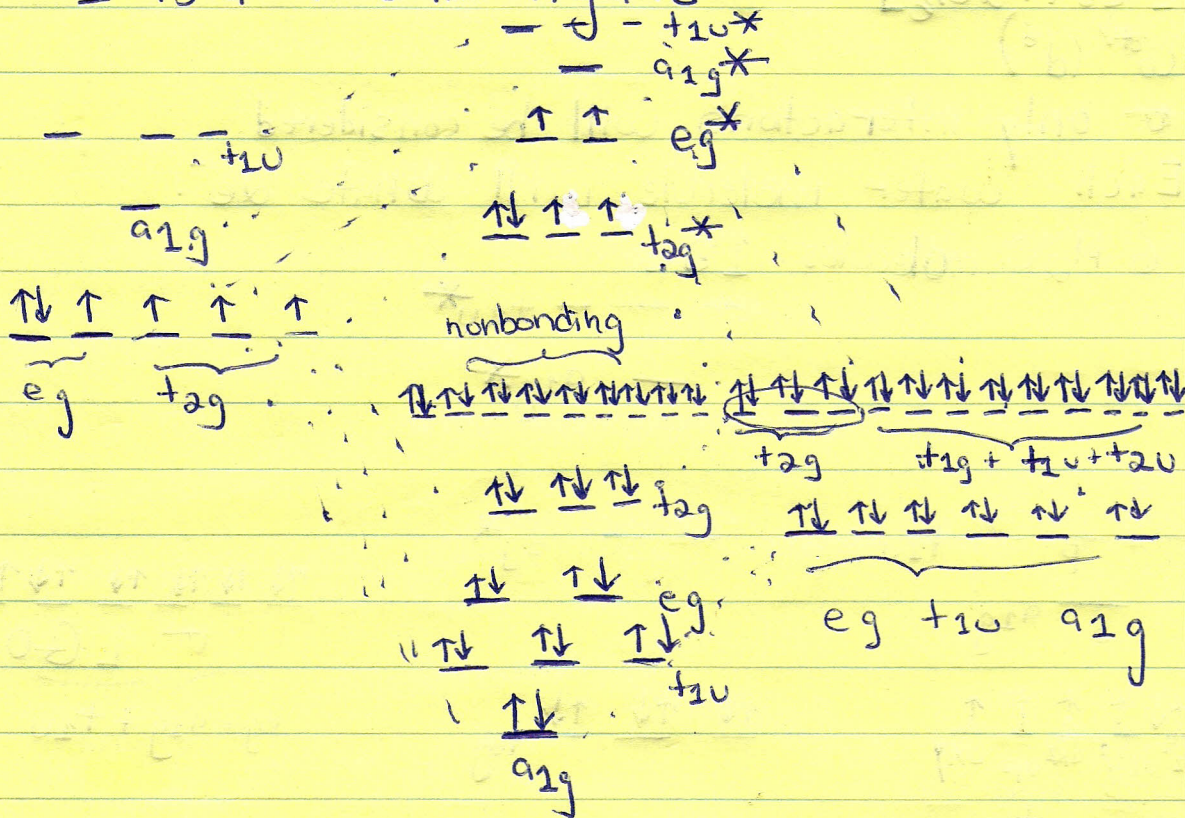 t1u*
a1g*
eg*
t1u
t2g*
a1g
nonbonding
eg t2g
t2g t1g + t1u + t2u
t2g
eg
eg t1u a1g
t1u
a1g